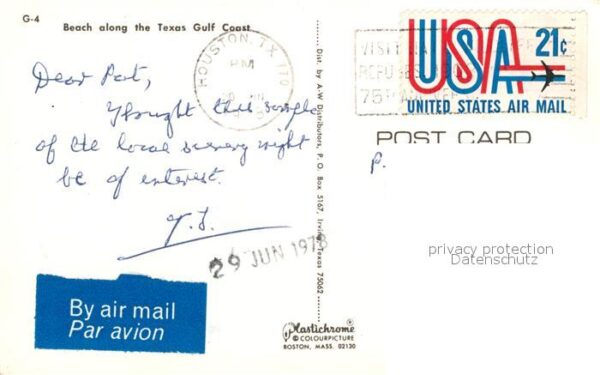 G-4
Beach along the Texas Gulf Coast
HOUSTON, TX 770
PM
USA 21¢
UNITED STATES AIR MAIL
POST CARD
P.
Dear Pat,
I thought this sample
of the local scenery might
be of interest.
29 JUN 1978
By air mail
Par avion
Dist. by A-W Distributors, P. O. Box 5167, Irving, Texas 75062
Plastichrome
© COLOURPICTURE
BOSTON, MASS. 02130
privacy protection
Datenschutz